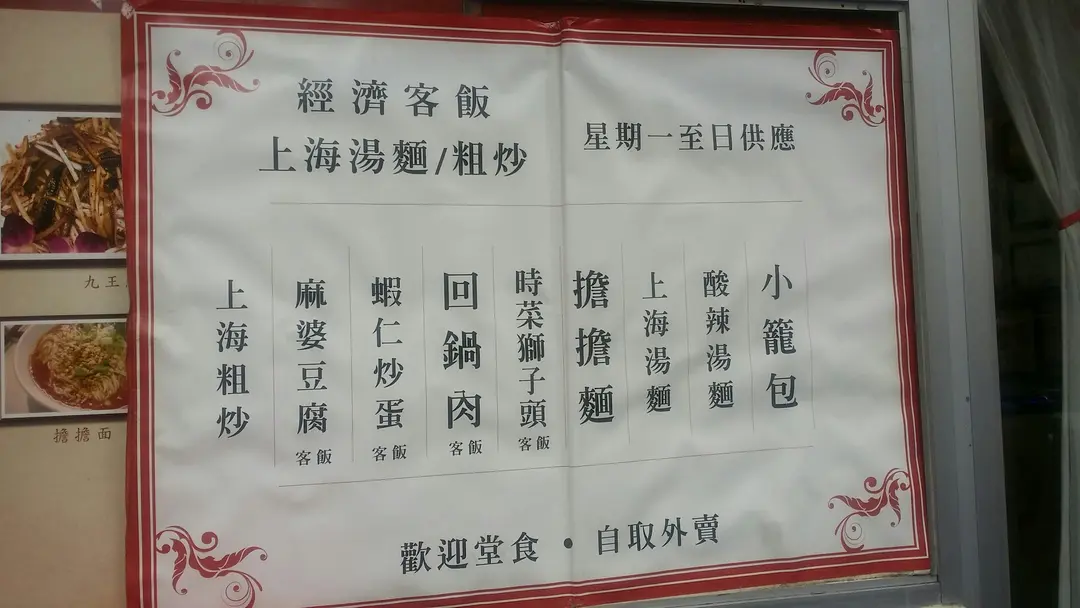 經濟客飯
上海湯麵/粗炒
星期一至日供應
小籠包
酸辣湯麵
上海湯麵
擔擔麵
時菜獅子頭客飯
回鍋肉客飯
蝦仁炒蛋客飯
麻婆豆腐客飯
上海粗炒
歡迎堂食 • 自取外賣
九王
擔擔面